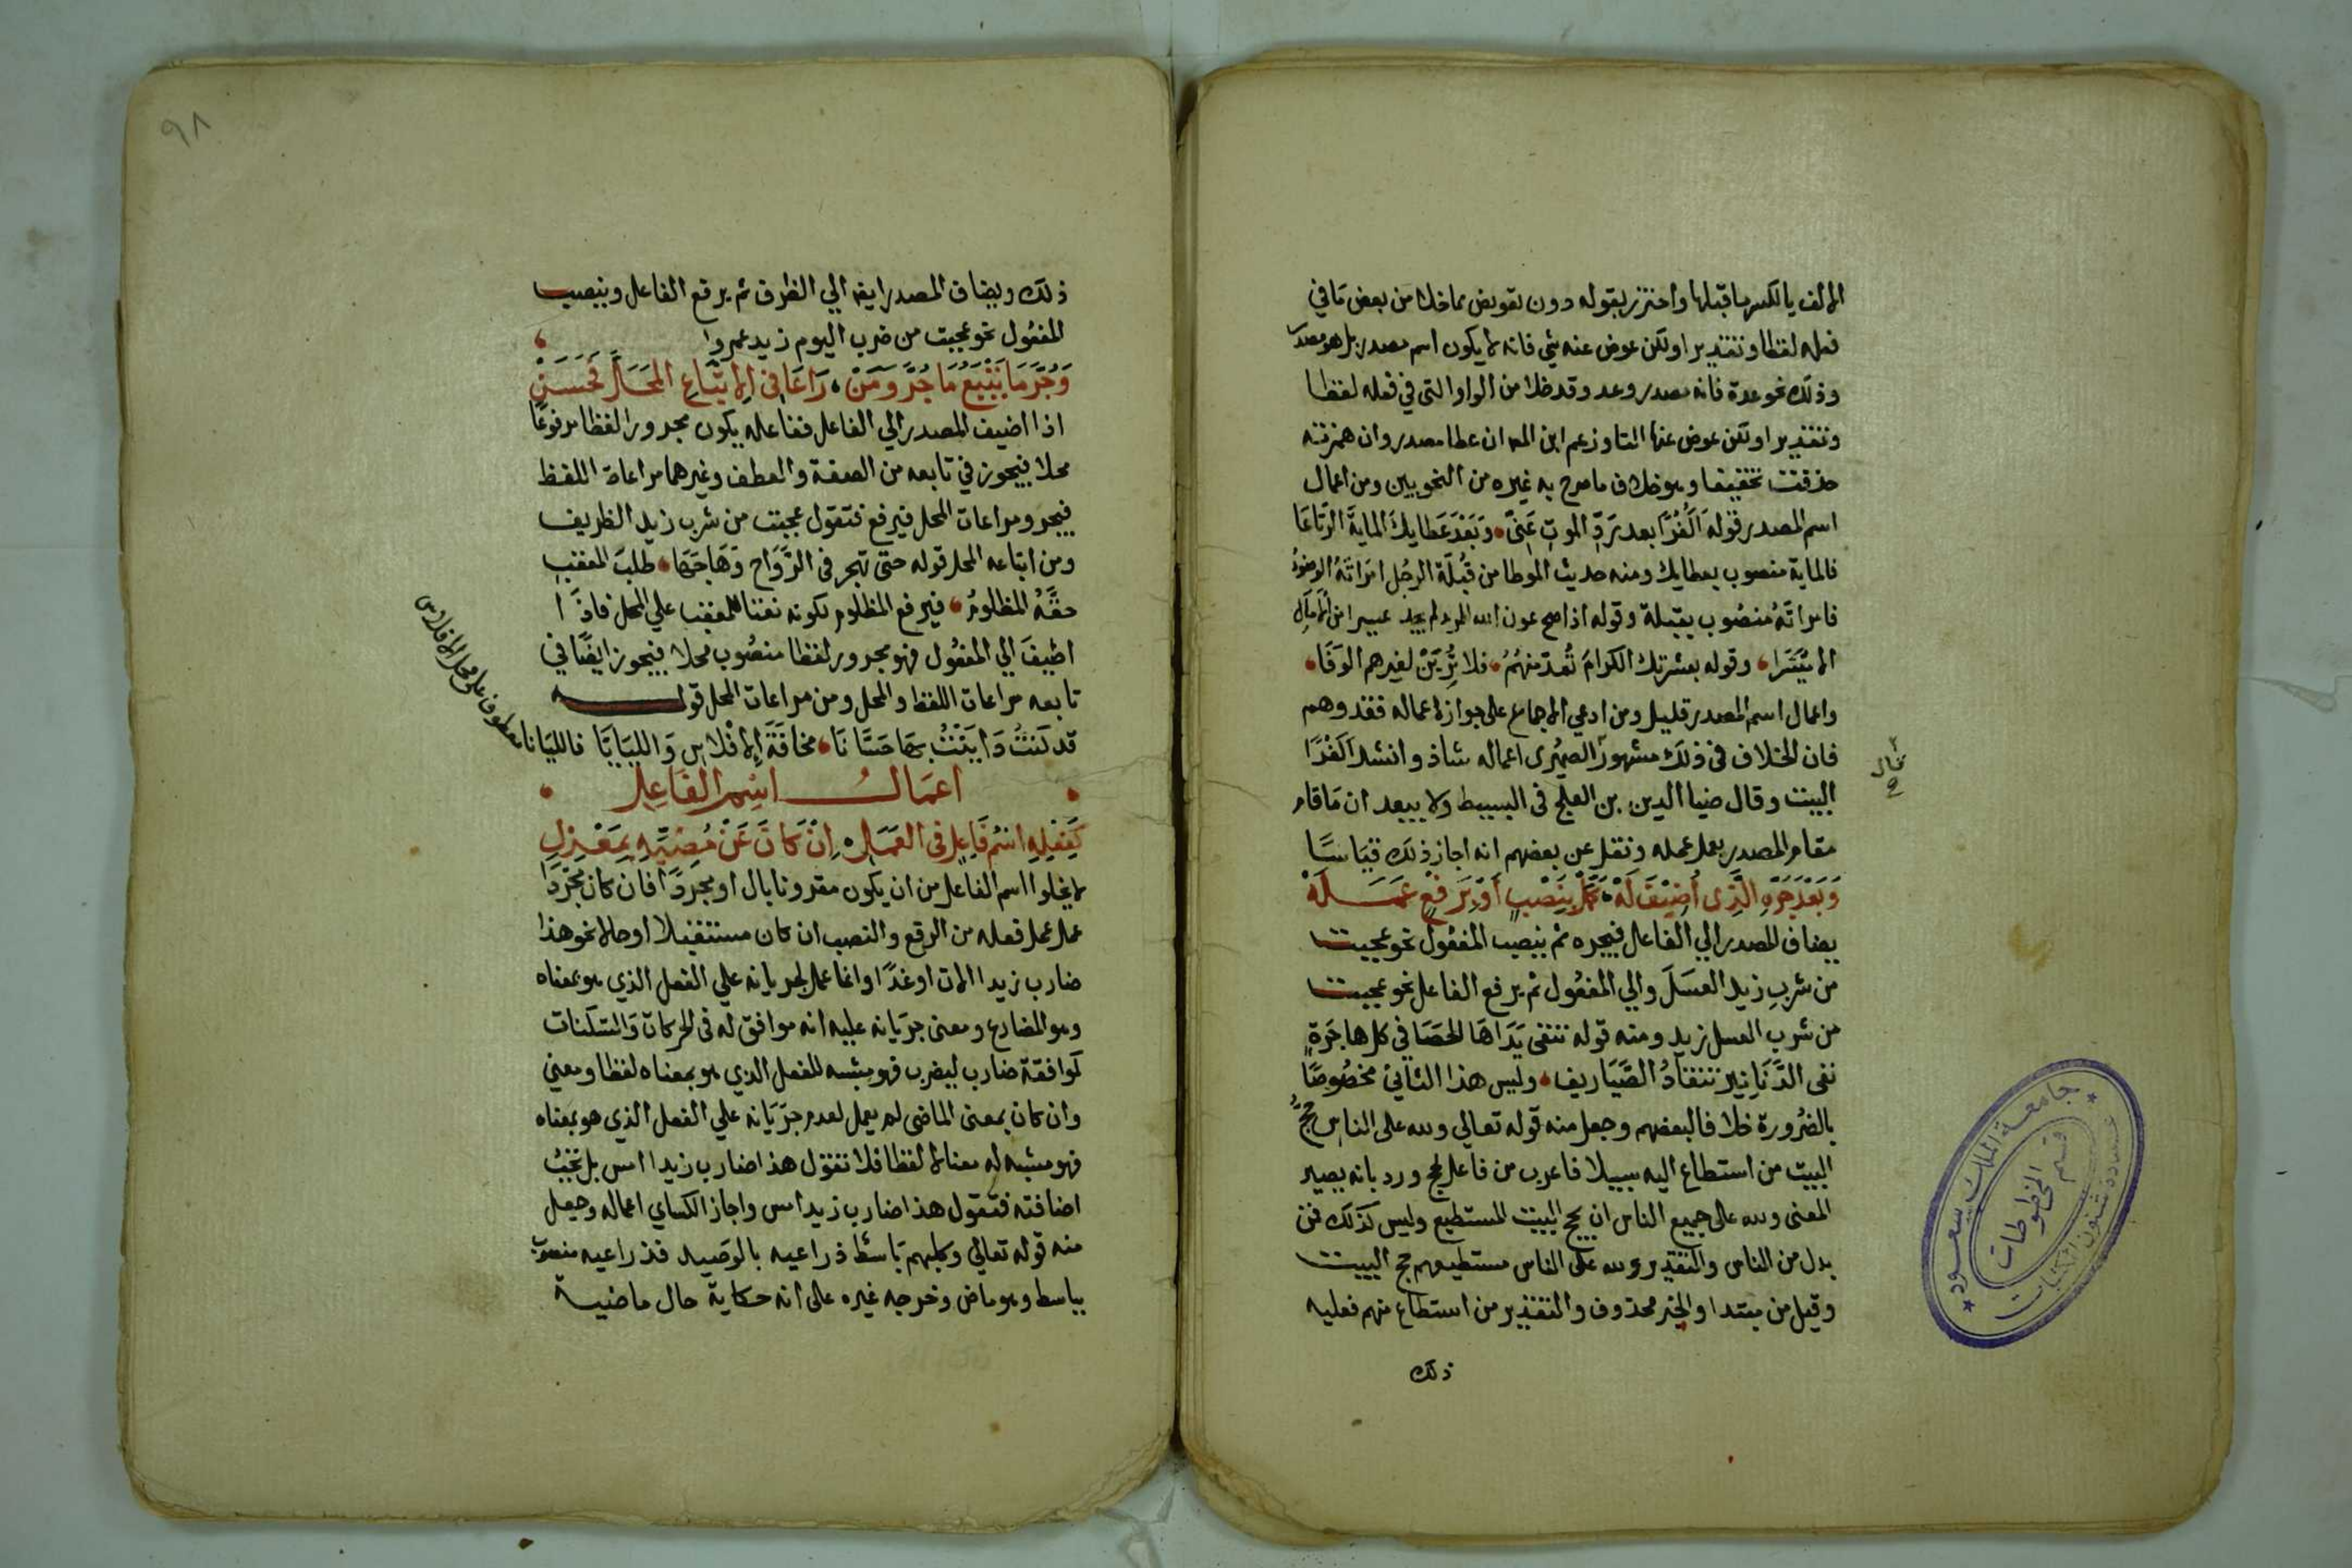 الالف يا لكسر ما قبلها واحترز بقوله دون تعويض مما خلا من بعض ما في
فعله لفظا وتقديرا ولكن عوض عنه شي فانه لا يكون اسم مصدر بل هو مصدر
وذلك نحو عدة فانه مصدر وعد وقد خلا من الواو التي في فعله لفظا
وتقديرا ولكن عوض عنها التا وزعم ابن المص ان عطا مصدر وان همزته
حذفت تخفيفا وهو خلاف ما صرح به غيره من النحويين ومن اعمال
اسم المصدر قوله اَكُفْرًا بعد رَدِّ الموتِ عَنِّي وَبَعْدَ عَطايِكَ المايةَ الرِّتَاعَا
فالماية منصوب بعطايك ومنه حديث الموطا من قُبْلَةِ الرجُلِ امْرَاتَهُ الوضوُ
فامراتَهُ منصُوب بقبلة وقوله اذا صح عون الله المرء لم يجد عسيرا من الآمالِ
الا مُيَسَّرا وقوله بعشرتك الكرامَ تُعدّ منهُمُ فلا تُرَيَنْ لغيرهم الوَفَا
واعمال اسم المصدر قليل ومن ادعي الاجماع على جواز اعماله فقد وهم
فان الخلاف في ذلك مشهور الصيمرى اعماله شاذ وانشد اَكُفْرًا
قال
صح
البيت وقال ضيا الدين بن العلج في البسيط ولا يبعد ان مَا قام
مقام المصدر يعمل عمله ونقل عن بعضهم انه اجاز ذلك قيَاسًا
وَبَعْدَ جَرِّهِ الَّذِى اُضِيْفَ لَهْ كَمِّلْ بِنَصْبٍ اَوْ بِرَفْعٍ عَمَلَهْ
يضاف المصدر الي الفاعل فيجره ثم ينصب المفعُول نحو عجبت
من شربِ زيد العسَلَ والي المفعُول ثم يرفع الفاعل نحو عجبت
من شرب العسل زيد ومنه قوله تنفى يَدَاهَا الحَصَا في كل هاجَرَةٍ
نفى الدَّنَانِير تنقادُ الصَّيَاريف وليس هذا الثاني مخصُوصًا
بالضُرورة خلافا لبعضهم وجعل منه قوله تعالي ولله على الناس حجُّ
البيت من استطاع اليه سبيلا فاعرب من فاعل حج ورد بانه يصير
المعنى ولله على جميع الناس ان يحج البيت المستطيع وليس كذلك فمن
بدل من الناس والتقدير ولله على الناس مستطيعهم حج البيت
وقيل من مبتدا والخبر محذوف والتقدير من استطاع منهم فعليه
ذلك
جامعة الملك سعود
قسم المخطوطات
عمادة شئون المكتبات
٩٨
ذلك ويضاف المصدر ايضا الي الظرف ثم يرفع الفاعل وينصب
المفعُول نحو عجبت من ضرب اليوم زيد عمروا
وَجُرَّ مَا يَتْبَعُ مَا جُرَّ وَمَنْ رَاعَا فِى الاِتِّبَاعِ المَحَلَّ فَحَسَنْ
اذا اضيف المصدر الي الفاعل ففاعله يكون مجرورا لفظا مرفوعًا
محلا فيجوز في تابعه من الصفة والعطف وغيرهما مراعاة اللفظ
فيجر ومراعات المحل فيرفع فتقول عجبت من شرب زيد الظريف
ومن اتباعه المحل قوله حتى تهجر فى الرَّوَاحِ وَهَاجَهَا طلبَ المعقبِ
حقَّهُ المظلومُ فيرفع المظلوم لكونه نعتا للمعقب علي المحل فاذَا
اضيفَ الي المفعُول فهو مجرور لفظا منصُوب محلا فيجوز ايضًا في
تابعه مراعات اللفظ والمحل ومن مراعات المحل قوله
قد كنتُ دَايَنْتُ بِهَا حَسَّانَا مخافَةَ الاِفْلاسِ وَاللَيَّانَا فالليانا
معطوف على محل الافلاس
اعمَال اسِم الفَاعِل
كَفِعْلِهِ اسْمُ فَاعِلٍ فى العَمَلِ اِنْ كَانَ عَنْ مُضِيِّهِ بِمَعْزِلِ
لا يخلوا اسم الفاعل من ان يكون مقرونا بال او مجَردًا فان كان مجَّردًا
عمل عمل فعله من الرفع والنصب ان كان مستقبلا او حالا نحو هذا
ضارب زيدا الان اوغدًا وانما عمل لجريانه علي الفعل الذي هو بمعناه
وهو المضارع ومعنى جرَيَانه عليه انه موافق له فى الحركات وَالسّكنات
لموافقة ضارب ليضرب فهو مشبه للفعل الذي هو بمعناه لفظا ومعني
وان كان بمعنى الماضى لم يعمل لعدم جرَيَانه علي الفعل الذي هو بمعناه
فهو مشبه له معنا لا لفظا فلا تقول هذا ضارب زيدا امس بل تجبُ
اضافته فتقول هذا ضارب زيد امس واجاز الكساي اعماله وجعل
منه قوله تعالي وكلبهم بَاسُطُ ذراعيه بالوَصِيد فذراعيه منصوب
بباسط وهو ماض وخرجه غيره على انه حكاية حال ماضية